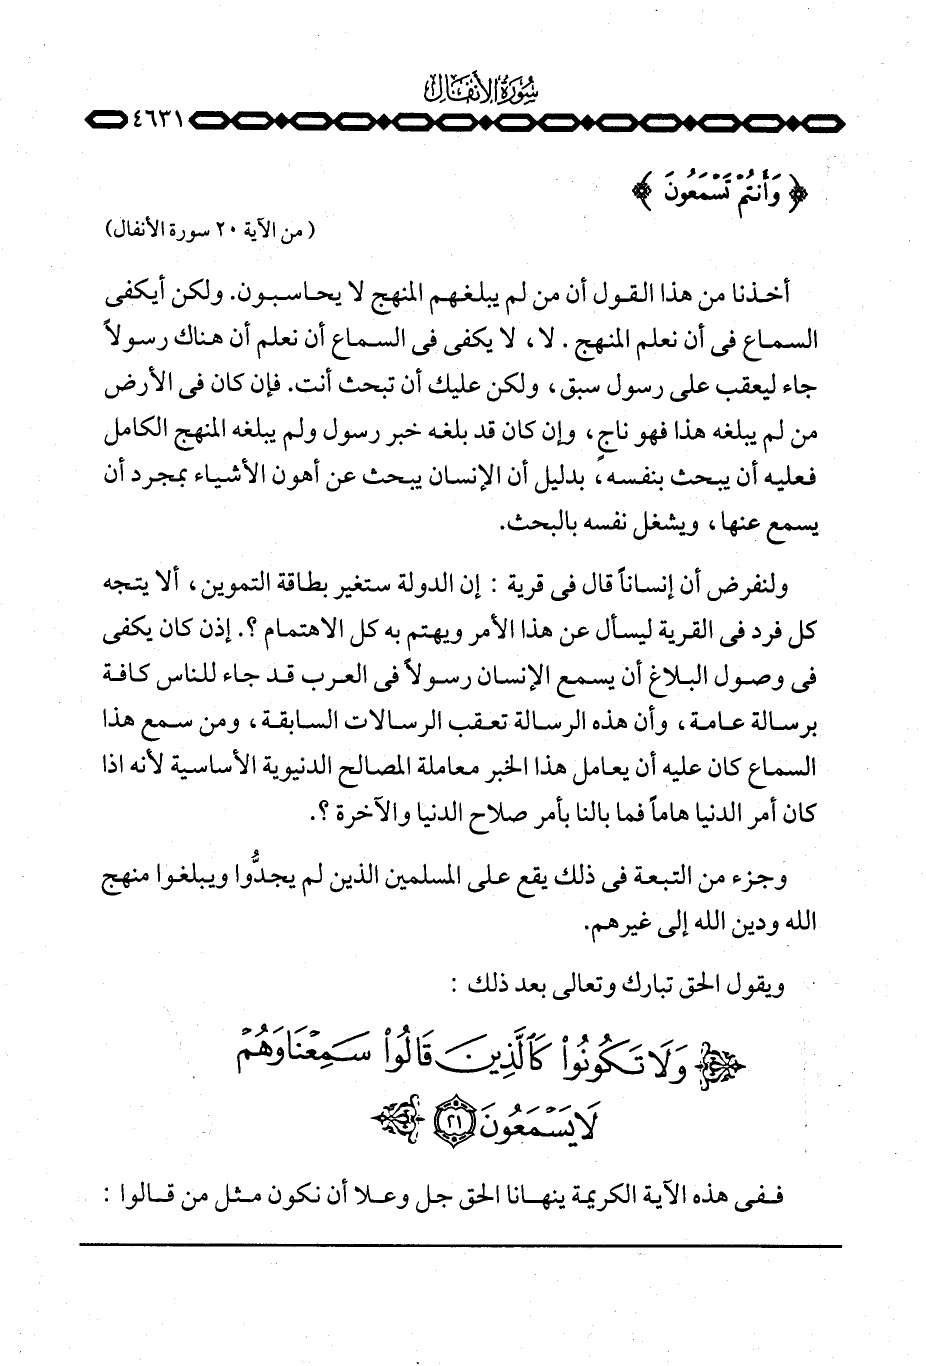 سُورَةُ الأَنْفَال
٤٦٣١
﴿ وَأَنتُمْ تَسْمَعُونَ ﴾
( من الآية ٢٠ سورة الأنفال)
أخذنا من هذا القول أن من لم يبلغهم المنهج لا يحاسبون. ولكن أيكفى
السماع فى أن نعلم المنهج . لا ، لا يكفى فى السماع أن نعلم أن هناك رسولاً
جاء ليعقب على رسول سبق ، ولكن عليك أن تبحث أنت. فإن كان فى الأرض
من لم يبلغه هذا فهو ناجٍ ، وإن كان قد بلغه خبر رسول ولم يبلغه المنهج الكامل
فعليه أن يبحث بنفسه ، بدليل أن الإنسان يبحث عن أهون الأشياء بمجرد أن
يسمع عنها ، ويشغل نفسه بالبحث.
ولنفرض أن إنساناً قال فى قرية : إن الدولة ستغير بطاقة التموين ، ألا يتجه
كل فرد فى القرية ليسأل عن هذا الأمر ويهتم به كل الاهتمام ؟. إذن كان يكفى
فى وصول البلاغ أن يسمع الإنسان رسولاً فى العرب قد جاء للناس كافة
برسالة عامة ، وأن هذه الرسالة تعقب الرسالات السابقة ، ومن سمع هذا
السماع كان عليه أن يعامل هذا الخبر معاملة المصالح الدنيوية الأساسية لأنه اذا
كان أمر الدنيا هاماً فما بالنا بأمر صلاح الدنيا والآخرة ؟.
وجزء من التبعة فى ذلك يقع على المسلمين الذين لم يجدُّوا ويبلغوا منهج
الله ودين الله إلى غيرهم.
ويقول الحق تبارك وتعالى بعد ذلك :
﴿ وَلَا تَكُونُوا۟ كَٱلَّذِينَ قَالُوا۟ سَمِعْنَا وَهُمْ
لَا يَسْمَعُونَ ٢١ ﴾
فـفى هذه الآية الكريمة ينهانا الحق جل وعلا أن نكون مثل من قالوا :